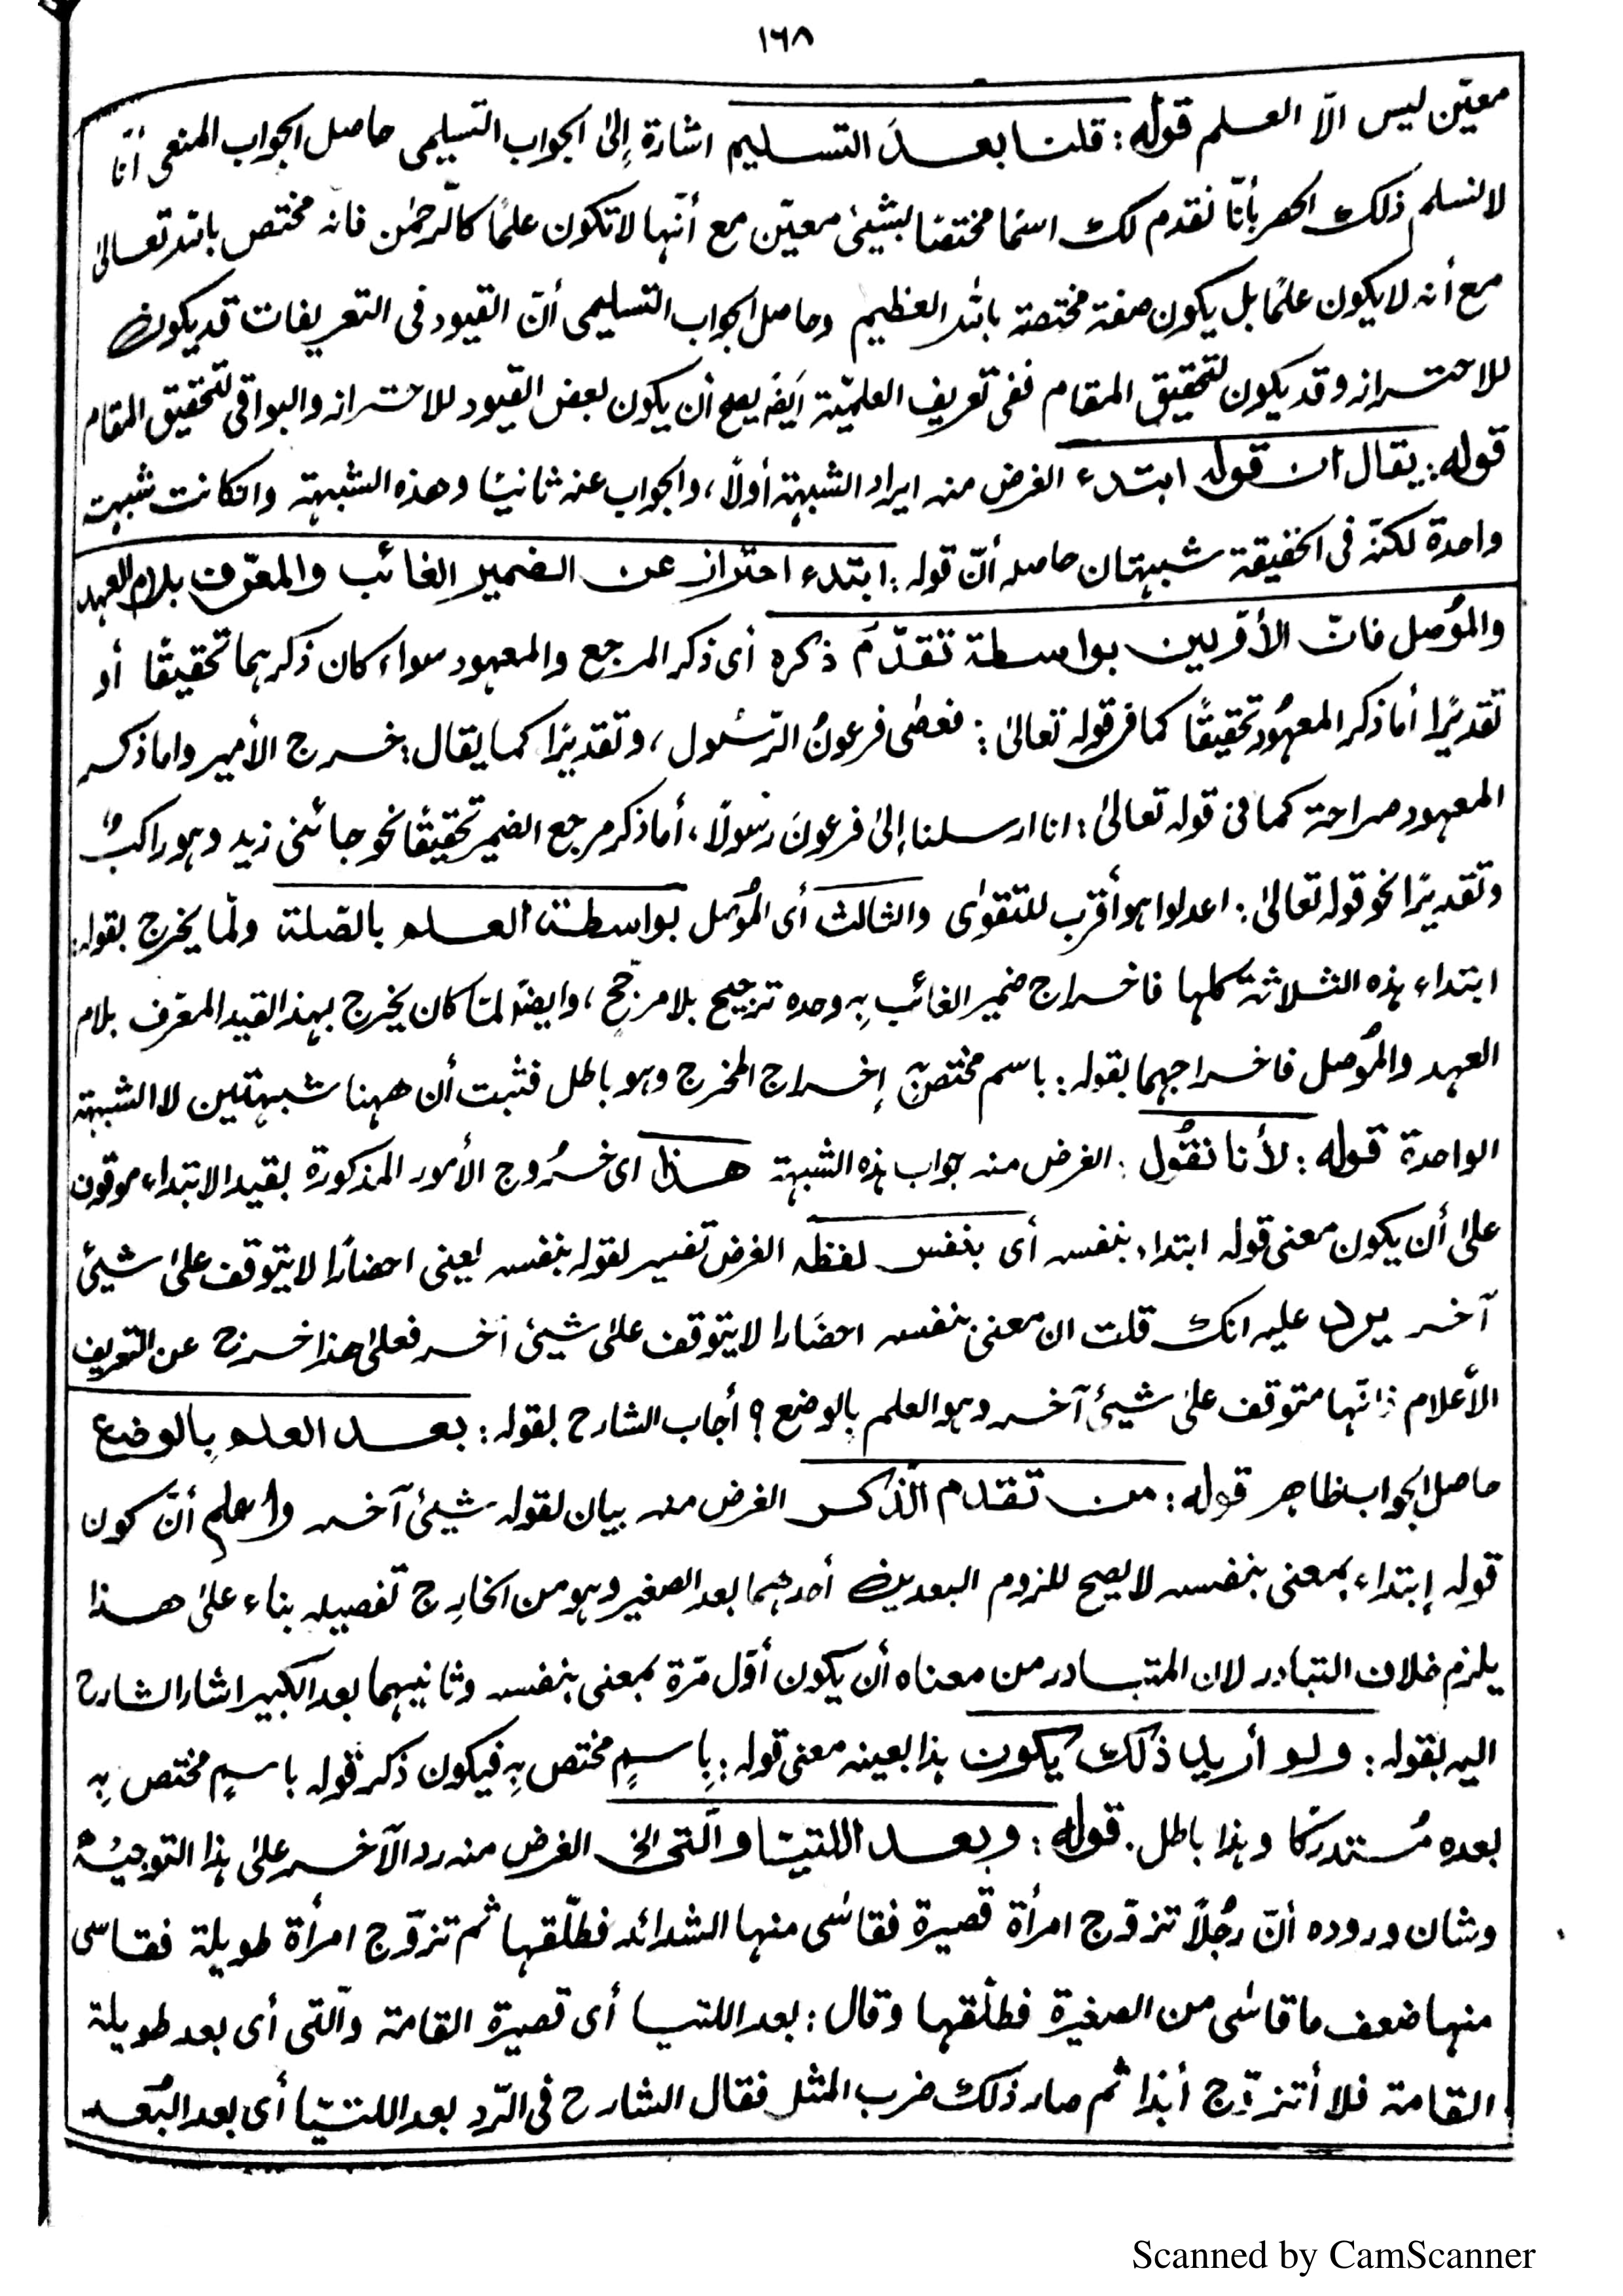 ١٦٨
معيّن ليس الّا العلم قوله: قلنا بعد التسليم اشارة إلى الجواب التسليمى حاصل الجواب المنعى أنّا
لا نسلم ذلك الحصر بأنّا نقدم لك اسمًا مختصًا بشيئ معيّن مع أنّها لا تكون علمًا كالرّحمٰن فانه مختص بالله تعالىٰ
مع أنه لا يكون علمًا بل يكون صفة مختصة بالله العظيم وحاصل الجواب التسليمى أنّ القيود فى التعريفات قد يكون
للاحتراز وقد يكون لتحقيق المقام ففى تعريف العلميّة ايضًا يصح أن يكون بعض القيود للاحتراز والبواقى لتحقيق المقام
قوله: يقال ان قوله ابتدء الغرض منه ايراد الشبهة أولًا، والجواب عنه ثانيًا وهذه الشبهة وانكانت شبهة
واحدة لكنّه فى الحقيقة شبهتان حاصله أنّ قوله: ابتدء احتراز عن الضمير الغائب والمعرّف بلام العهد
والمؤصل فانّ الأوّلين بواسطة تقدّم ذكره أى ذكر المرجع والمعهود سواء كان ذكرهما تحقيقًا أو
تقديرًا أما ذكر المعهود تحقيقًا كما فى قوله تعالىٰ: فعصٰى فرعونُ الرّسُول، وتقديرًا كما يقال: خرج الأمير واما ذكر
المعهود صراحة كما فى قوله تعالىٰ: انا ارسلنا إلىٰ فرعونَ رسُولًا، أما ذكر مرجع الضمير تحقيقًا نحو جائنى زيد وهو راكبٌ
وتقديرًا نحو قوله تعالىٰ: اعدلوا هو أقرب للتقوٰى والثالث أى المؤصل بواسطة العلم بالصّلة ولمّا يخرج بقوله:
ابتداء هذه الثلاثة كلها فاخراج ضمير الغائب بِه وحده ترجيح بلا مرجّح، وايضًا لمّا كان يخرج بهذا القيد المعرّف بلام
العهد والمؤصل فاخراجهما بقوله: باسم مختصٍ بِه إخراج المخرج وهو باطل فثبت أن ههنا شبهتين لا الشبهة
الواحدة قوله: لأنا نقُول: الغرض منه جواب هذه الشبهة هذا اى خرُوج الأمور المذكورة بقيد الابتداء موقوف
علىٰ أن يكون معنى قوله ابتداء بنفسه أى بنفس لفظه الغرض تفسير لقوله بنفسه يعنى احضارًا لا يتوقف علىٰ شيئ
آخر يرد عليه انك قلت ان معنى بنفسه احضارا لا يتوقف علىٰ شيئ آخر فعلىٰ هذا خرج عن التعريف
الأعلام فانّها متوقف علىٰ شيئ آخر وهو العلم بالوضع؟ أجاب الشارح بقوله: بعد العلم بِالوضع
حاصل الجواب ظاهر قوله: من تقدم الذّكر الغرض منه بيان لقوله شيئ آخر واعلم أنّ كون
قوله إبتداء بمعنى بنفسه لا يصح للزوم البعدين أحدهما بعد الصغير وهو من الخارج تفصيله بناء علىٰ هذا
يلزم خلاف التبادر لان المتبادر من معناه أن يكون أوّل مرّة بمعنى بنفسه وثانيهما بعد الكبير اشار الشارح
اليه بقوله: ولو أريد ذلك يكون هذا بعينه معنى قوله: بِاسمٍ مختص بِه فيكون ذكر قوله باسمٍ مختص بِه
بعده مُستدركًا وهذا باطل. قوله: وبعد اللتيّا والّتى الخ الغرض منه رد الآخر علىٰ هذا التوجيه
وشان وروده أنّ رجُلًا تزوّج امرأة قصيرة فقاسٰى منها الشدائد فطلّقها ثم تزوّج امرأة طويلة فقاسى
منها ضعف ما قاسٰى من الصغيرة فطلّقها وقال: بعد اللتيا أى قصيرة القامة والّتى أى بعد طويلة
القامة فلا أتزوّج أبدًا ثم صار ذلك ضرب المثل فقال الشارح فى الرّد بعد اللتيّا أى بعد البُعد
Scanned by CamScanner